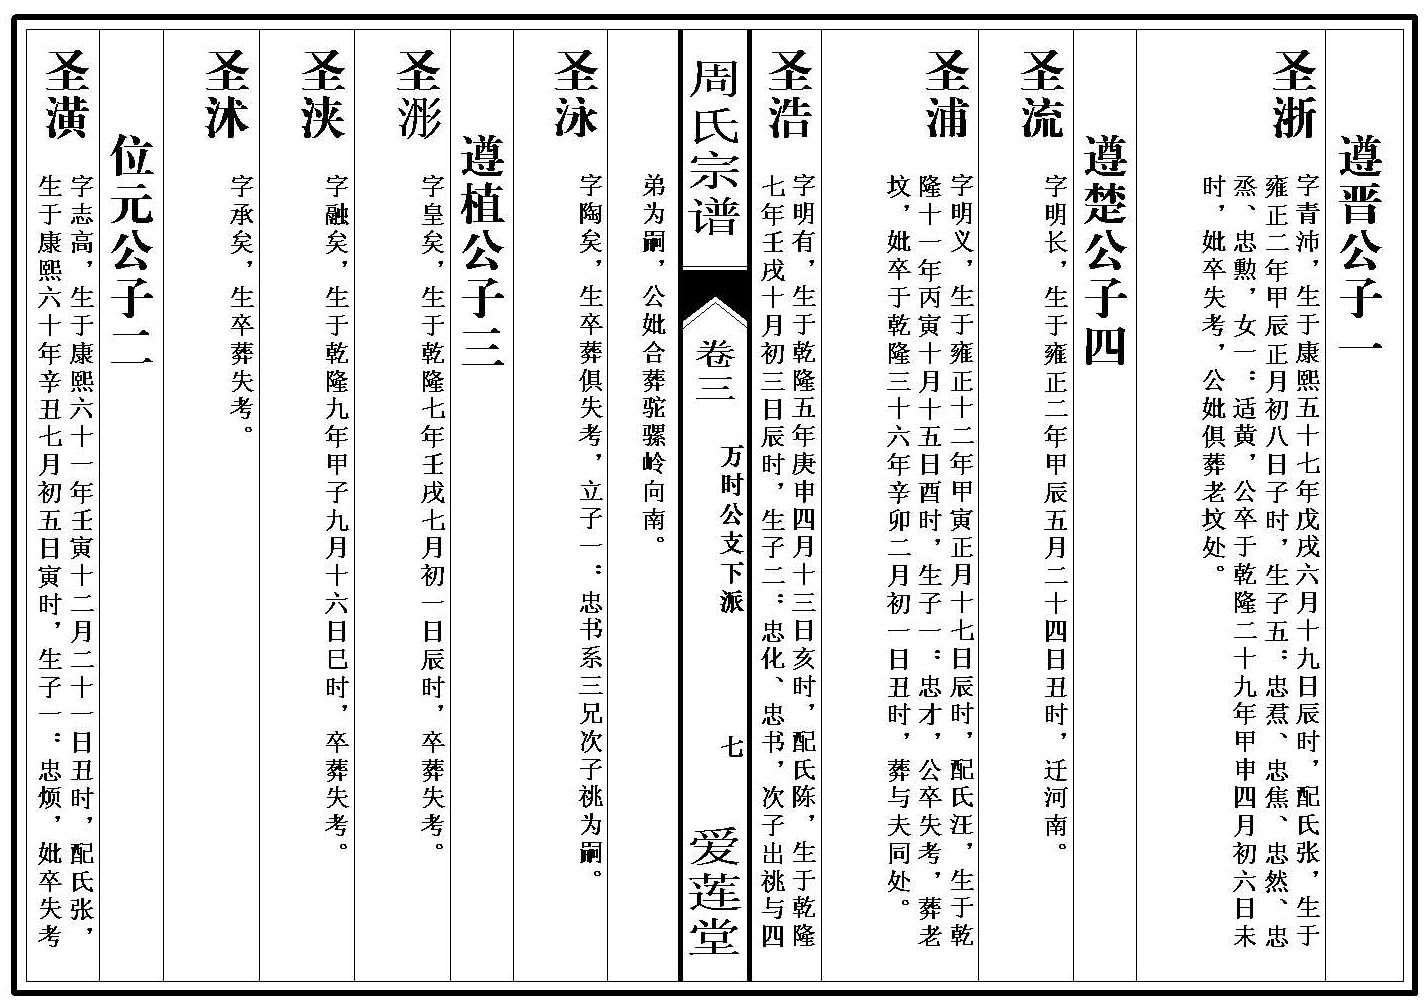 遵晋公子一
圣浙
字青沛，生于康熙五十七年戊戌六月十九日辰时，配氏张，生于
雍正二年甲辰正月初八日子时，生子五：忠焄、忠焦、忠然、忠
烝、忠勲，女一：适黄，公卒于乾隆二十九年甲申四月初六日未
时，妣卒失考，公妣俱葬老坟处。
遵楚公子四
圣流
字明长，生于雍正二年甲辰五月二十四日丑时，迁河南。
圣浦
字明义，生于雍正十二年甲寅正月十七日辰时，配氏汪，生于乾
隆十一年丙寅十月十五日酉时，生子一：忠才，公卒失考，葬老
坟，妣卒于乾隆三十六年辛卯二月初一日丑时，葬与夫同处。
圣浩
字明有，生于乾隆五年庚申四月十三日亥时，配氏陈，生于乾隆
七年壬戌十月初三日辰时，生子二：忠化、忠书，次子出祧与四
周氏宗谱
卷三
万时公支下派
七
爱莲堂
弟为嗣，公妣合葬驼骡岭向南。
圣泳
字陶矣，生卒葬俱失考，立子一：忠书系三兄次子祧为嗣。
遵植公子三
圣浵
字皇矣，生于乾隆七年壬戌七月初一日辰时，卒葬失考。
圣浃
字融矣，生于乾隆九年甲子九月十六日巳时，卒葬失考。
圣沭
字承矣，生卒葬失考。
位元公子二
圣潢
字志高，生于康熙六十一年壬寅十二月二十一日丑时，配氏张，
生于康熙六十年辛丑七月初五日寅时，生子一：忠烦，妣卒失考